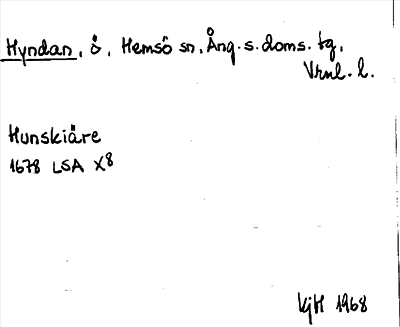 Hyndan, ö, Hemsö sn, Ång. s. doms. tg,
Vrnl. l.
Hunskiäre
1678 LSA X8
KjH 1968